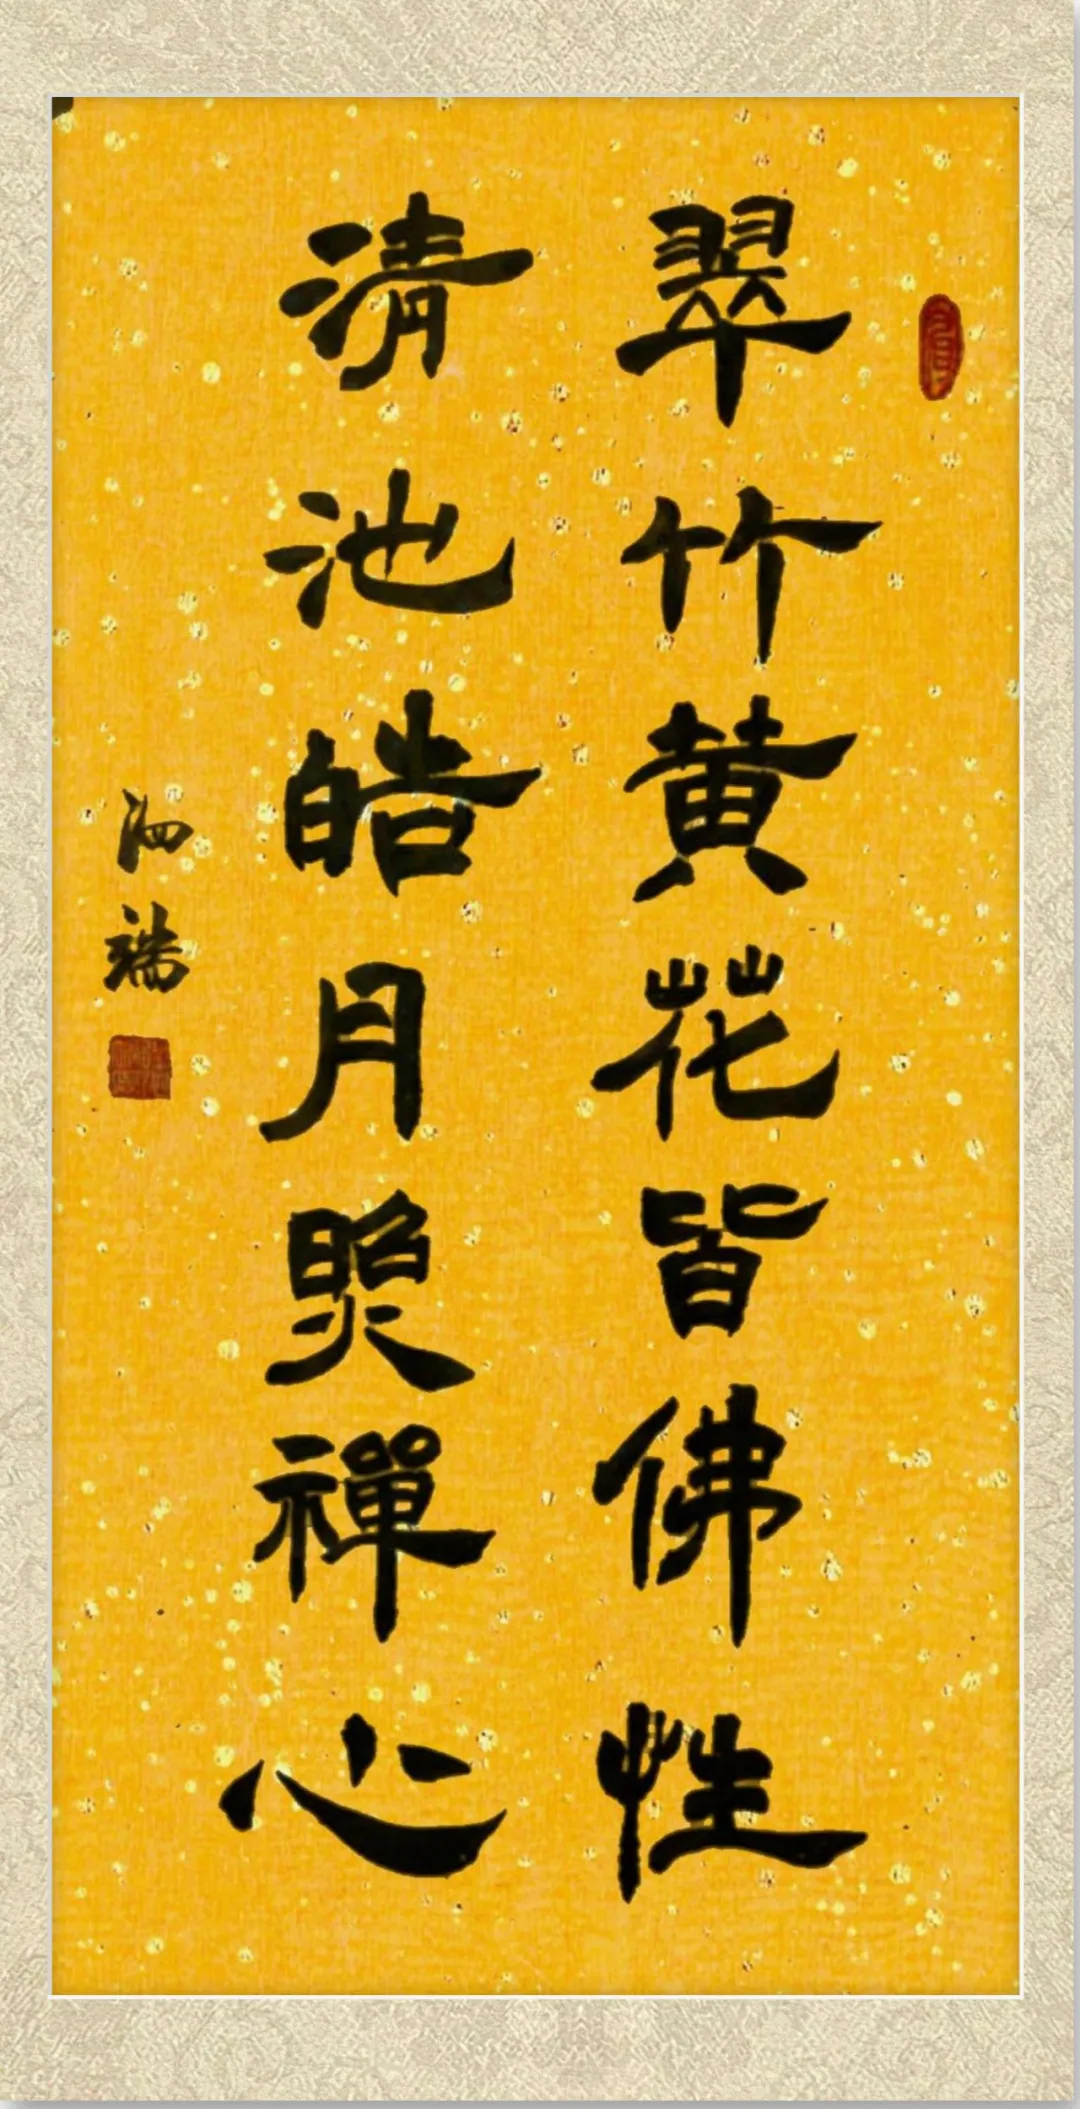 翠竹黄花皆佛性
清池皓月照禪心
泗端